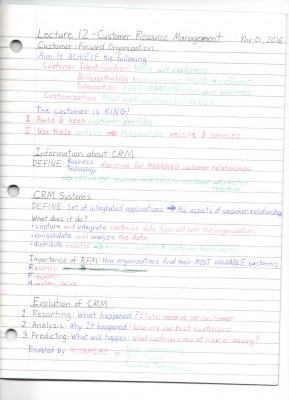 Lecture 12 - Customer Resource Management Nov 01, 2016
Customer-Focused Organization
Aim to ACHIEVE the following
Customer Identification: KNOW our customers
Differentiation: each customer VALUE is different
Interaction: KEEP LEARNING about our customers
Customization: treat each customer UNIQUELY
The customer is KING!
1. Build & keep customer profiles
2. Use these → Personalize website & services
Information about CRM
DEFINE: Business Technology discipline for MANAGING customer relationships
→ revenue customer satisfaction
CRM Systems
DEFINE: Set of integrated applications → ALL aspects of customer relationship
What does it do?
• capture and integrate customer data from all over the organization
• consolidate and analyze the data
• distribute results →
Importance of RFM: How organizations find their MOST VALUABLE customers
Recency
Frequency
Monetary value
Evolution of CRM
1. Reporting: What happened?: Total revenue by customer
2. Analysis: Why it happened: Who are our best customers
3. Predicting: What will happen: What customers are at risk of leaving?
Enabled by ADVANCES in Data warehousing
Data mining
Business Intelligence